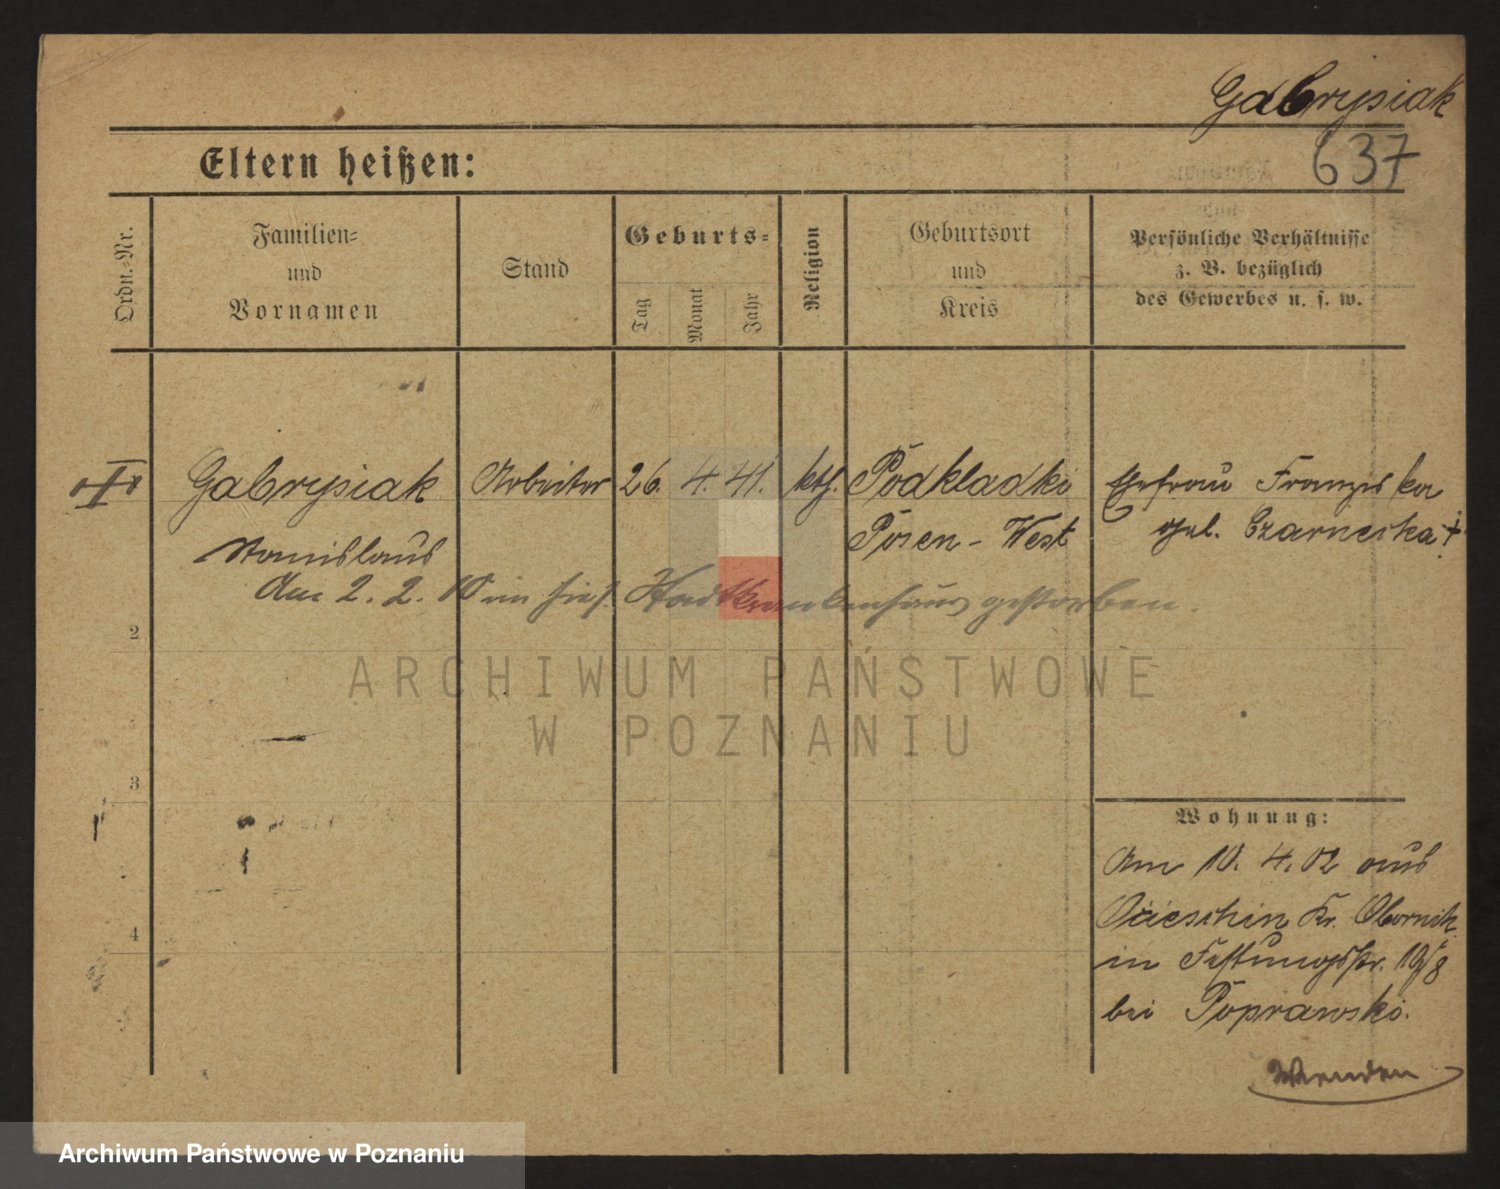 Gabrysiak
Eltern heißen:
637
Ordn.-Nr.
Familien-
und
Vornamen
Stand
Geburts-
Tag
Monat
Jahr
Religion
Geburtsort
und
Kreis
Persönliche Verhältnisse
z. B. bezüglich
des Gewerbes u. s. w.
Gabrysiak Arbeiter 26. 4. 41. kth. Podkladki Ehefrau Franziska
Stanislaus Posen-West geb. Czarnecka †
Am 2. 2. 10 im hies. Stadtkrankenhaus gestorben.
2
ARCHIWUM PAŃSTWOWE
W POZNANIU
3
Wohnung:
Am 10. 4. 02 aus
Kr. Obornik
4
in Festungsstr. 19/8
bei Poprawski.
Wenden
Archiwum Państwowe w Poznaniu